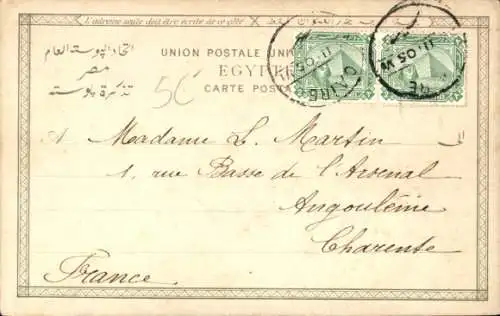 L'adresse seule doit être écrite de ce côté
اتحاد البوسته العام
مصر
تذكرة بوسته
UNION POSTALE UNI
EGYPTE
CARTE POSTA
CAIRE
11.05
50
A Madame L. Martin
1, rue Basse de l'Arsenal
Angoulême
Charente
France